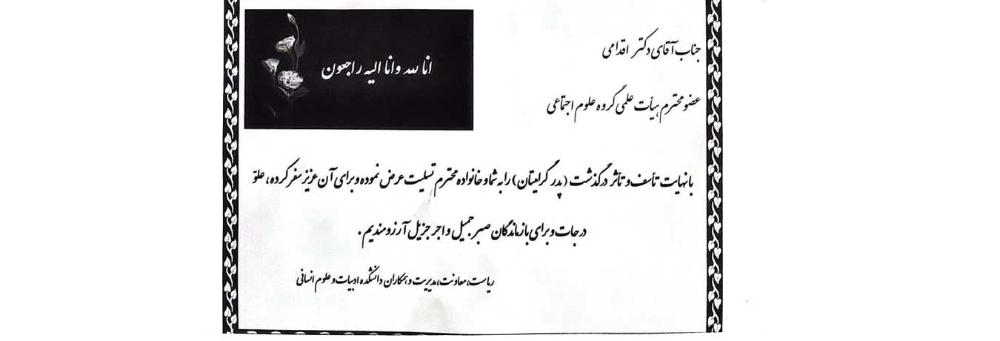 انا لله وانا الیه راجعون
جناب آقای دکتر اقدامی
عضو محترم هیأت علمی گروه علوم اجتماعی
با نهایت تأسف و تأثر درگذشت (پدر گرامیتان) را به شما و خانواده محترم تسلیت عرض نموده و برای آن عزیز سفر کرده، علوّ
درجات و برای بازماندگان صبر جمیل و اجر جزیل آرزومندیم.
ریاست، معاونت، مدیریت و همکاران دانشکده ادبیات و علوم انسانی